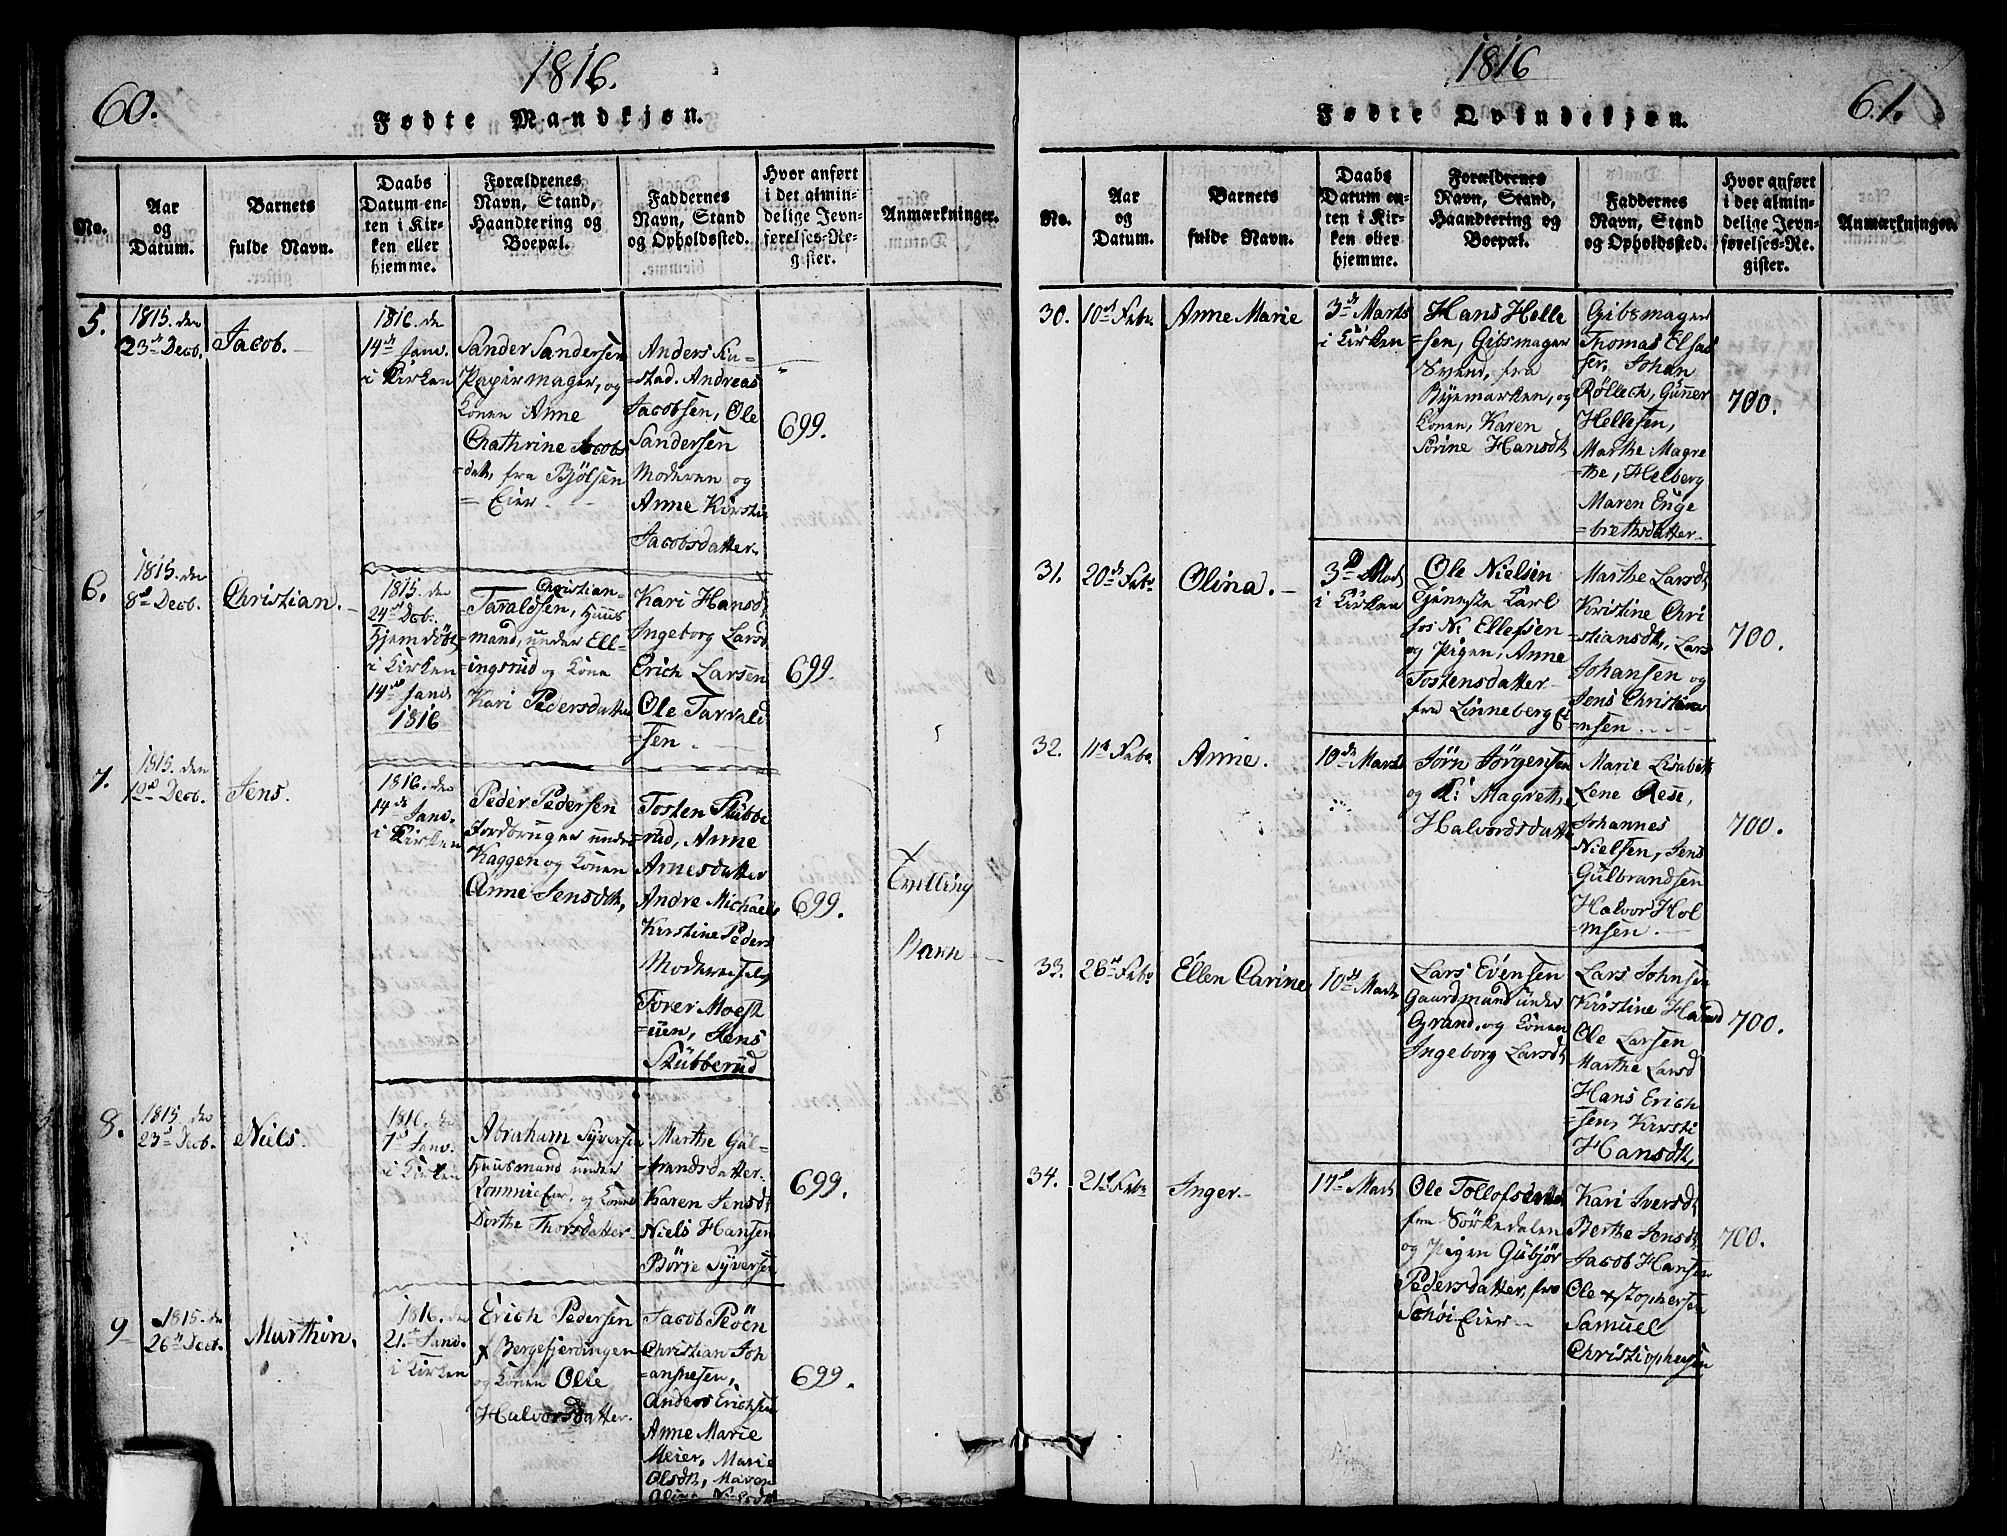 60.
1816.
Fødte Mandkjøn.
No.
Aar
og
Datum.
Barnets
fulde Navn.
Daabs
Datum en-
ten i Kir-
ken eller
hjemme.
Forældrenes
Navn, Stand,
Haandtering og
Boepæl.
Faddernes
Navn, Stand
og Opholdssted.
Hvor anført
i det almin-
delige Jevn-
førelses-Re-
gister.
Anmærkninger.
5.
1815. den
23de Decb.
Jacob.
1816. de
14de Janv.
i Kirken
Sander Sandersen
Papirmager, og
Konen Anne
Chathrine Jacobs
=datr, fra Bjølsen
=Eier.
Anders
=stad. Andreas
Jacobsen, Ole
Sandersen
Moderen og
Anne Kirstie
Jacobsdatter.
699.
6.
1815. den
8de Decb.
Christian.
1815. de
24de Deb.
Hjemdöbt
i Kirken
14de Jand
1816
Christian-
Taraldsen, Huus
=mand, under Ell-
=ingsrud og Kone
Kari Pedersdatter
Kari Hansd
Ingeborg Larsd
Erich Larsen
Ole Tarrald
=sen.
699.
7.
1815. den
12de Decb.
Jens.
1816. de
14de Janv.
i Kirken
Peder Pedersen
Jordbruger under
Kaggen og Konen
Anne Jensdtr,
Tosten Stübbe
=rud, Anne
Arnesdatter
Andre Michaels
Kirstine Peders
Moderen selv
Torer Moest
=uen, Jens
Stübberüd
699.
Tvilling
Barn
8.
1815 den
23de Decb.
Niels.
1816. de
7de Janv.
i Kirken
Abraham Syversen
Huusmand under
og Konen
Dorthe Thorsdatter
Marthe Gul-
=brandsdatter.
Karen Jensdt
Niels Hansen
Börre Syversen
699.
9
1815. de
26de Decb.
Marthin.
1816. de
21de Jand.
i Kirken
Erich Pedersen
x Bergefjerdingen
og Konen Olie
Halvorsdatter.
Jacob Pöen
Christian Joh
=annesen,
Anders Erichsen
Anne Marie
Meier, Marie
Olsdtr, Maren
699.
1816
61.
Fødte Qvindekjøn.
No.
Aar
og
Datum.
Barnets
fulde Navn.
Daabs
Datum en-
ten i Kir-
ken eller
hjemme.
Forældrenes
Navn, Stand,
Haandtering og
Boepæl.
Faddernes
Navn, Stand
og Opholdssted.
Hvor anført
i det almin-
delige Jevn-
førelses-Re-
gister.
Anmærkninger.
30.
10de Febr.
Anne Marie
3de Marts
i Kirken
Hans Helle
=sen, Gibsmager
Svend, fra
Byemarken, og
Konen, Karen
Sörine Hansdt
Gibsmager
Thomas Elsas
ser, Johan
Röllech, Gunner
Hellesen,
Marthe Magre
=the, Helberg
Maren Enge
=brethsdatter
700.
31.
20de Febr
Olina.
3de Marts
i Kirken
Ole Nielsen
Tjeneste Karl
hos N. Ellefsen
og Pigen, Anne
Tostensdatter
fra Linneberg E
Marthe Larsdt
Kristine Chri
=stiansdtr, Lars
Johansen og
Jens Christian
=nsen
700.
32.
11te Febr.
Anne.
10de Marts
Jörn Jörgensen
og K. Magrethe
Halvordsdatter
Marie Lisabeth
Lene Rese,
Johannes
Nielsen, Jens
Gulbrandsen
Halvor Hol
=msen.
700.
33.
26de Febr
Ellen Carine
10de Marts
Lars Evensen
Gaardmand under
Grand, og Konen
Ingeborg Larsdt
Lars Johnsen
Kirstine
Ole Larsen
Marthe Larsd
Hans Erich
=sen, Kirsti
Hansdtr,
700.
34.
21de Febr
Inger.
17de Marts
Ole Tollofsen
fra Sörkedalen
og Pigen Gubjör
Pedersdatter, fra
Schöi Eier
Kari Iversdt
Berthe Jensdt
Jacob Hansen
Ole
Samuel
Christiophersen
700.